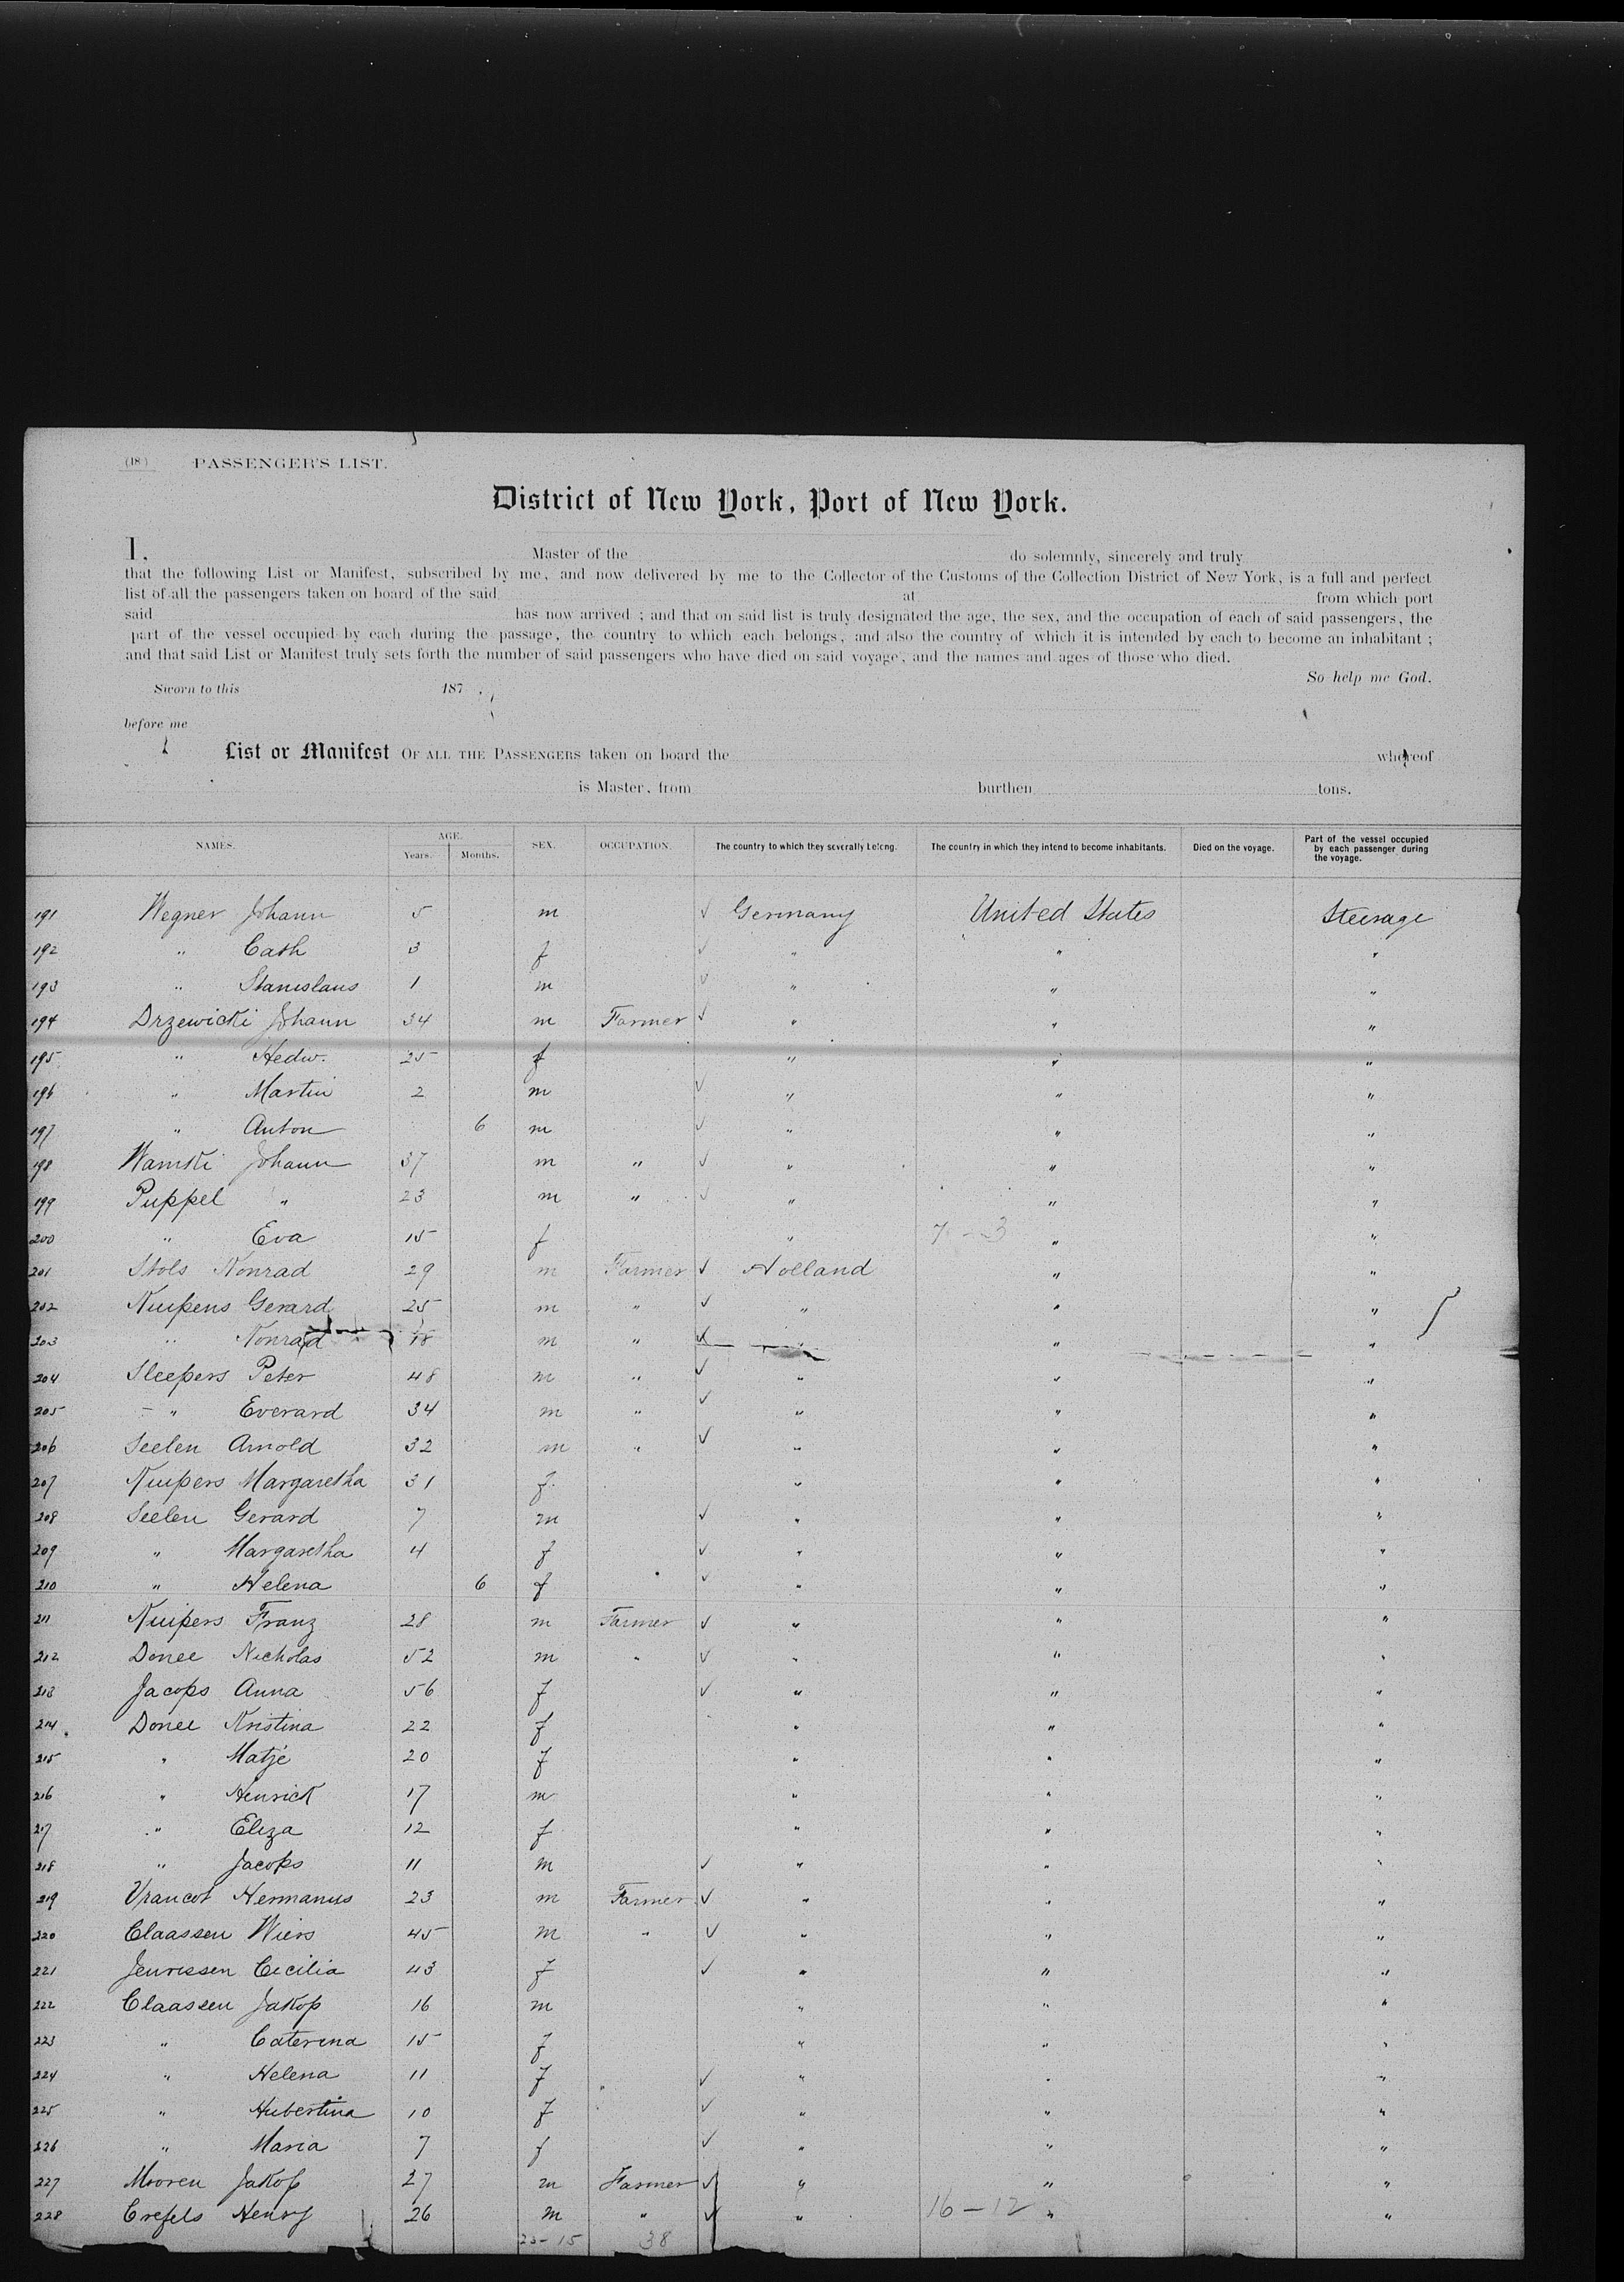 (18) PASSENGER'S LIST.
District of New York, Port of New York.
I, Master of the do solemnly, sincerely and truly
that the following List or Manifest, subscribed by me, and now delivered by me to the Collector of the Customs of the Collection District of New York, is a full and perfect
list of all the passengers taken on board of the said at from which port
said has now arrived ; and that on said list is truly designated the age, the sex, and the occupation of each of said passengers, the
part of the vessel occupied by each during the passage, the country to which each belongs, and also the country of which it is intended by each to become an inhabitant ;
and that said List or Manifest truly sets forth the number of said passengers who have died on said voyage, and the names and ages of those who died.
So help me God.
Sworn to this 187 .
before me
List or Manifest OF ALL THE PASSENGERS taken on board the whereof
is Master, from burthen tons.
NAMES. AGE. Years. Months. SEX. OCCUPATION. The country to which they severally belong. The country in which they intend to become inhabitants. Died on the voyage. Part of the vessel occupied by each passenger during the voyage.
191 Wegner Johann 5 m ✓ Germany United States Steerage
192 " Cath 3 f ✓ " " "
193 " Stanislaus 1 m ✓ " " "
194 Drzewicki Johann 34 m Farmer ✓ " " "
195 " Hedw. 25 f " " "
196 " Martin 2 m ✓ " " "
197 " Anton 6 m ✓ " " "
198 Wamski Johann 37 m " ✓ " " "
199 Puppel " 23 m " ✓ " " "
200 " Eva 15 f " 7 - 3 " "
201 Stols Konrad 29 m Farmer ✓ Holland " "
202 Kuipens Gerard 25 m " ✓ " " "
203 " Konrad 18 m " ✓ " " "
204 Sleepers Peter 48 m " ✓ " " "
205 " Everard 34 m " ✓ " " "
206 Seelen Arnold 32 m " ✓ " " "
207 Kuipers Margaretha 31 f. " " "
208 Seelen Gerard 7 m ✓ " " "
209 " Margaretha 4 f ✓ " " "
210 " Helena 6 f ✓ " " "
211 Kuipers Franz 28 m Farmer ✓ " " "
212 Donee Nicholas 52 m " ✓ " " "
213 Jacops Anna 56 f ✓ " " "
214 Donee Kristina 22 f " " "
215 " Matje 20 f " " "
216 " Henrick 17 m " " "
217 " Eliza 12 f " " "
218 " Jacops 11 m ✓ " " "
219 Vrancot Hermanus 23 m Farmer ✓ " " "
220 Claassen Wiers 45 m " ✓ " " "
221 Jeurissen Cecilia 43 f ✓ " " "
222 Claassen Jakop 16 m " " "
223 " Caterina 15 f " " "
224 " Helena 11 f ✓ " " "
225 " Hubertina 10 f ✓ " " "
226 " Maria 7 f ✓ " " "
227 Mooren Jakop 27 m Farmer ✓ " " "
228 Crefels Henry 26 m " ✓ " 16 - 12 " "
23 - 15 38